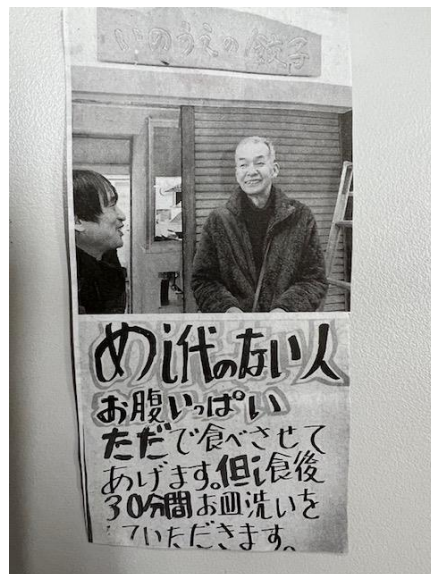 いのうえの餃子
めし代のない人
お腹いっぱい
ただで食べさせて
あげます。但し食後
30分間お皿洗いを
していただきます。